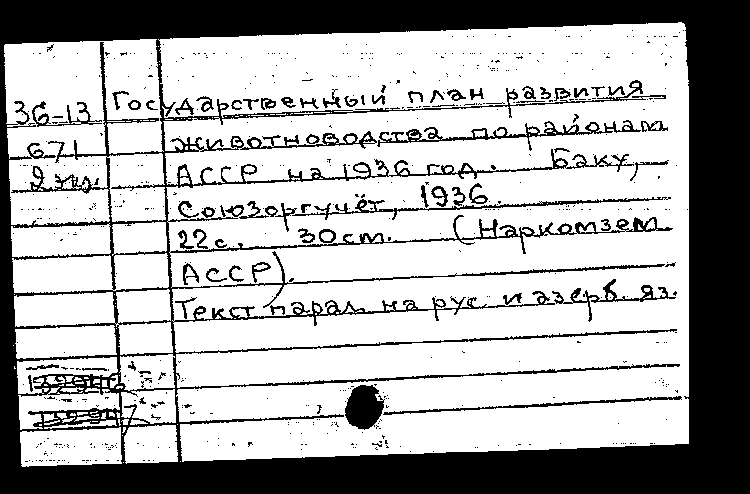 36-13 Государственный план развития
671 животноводства по районам
2 экз. АССР на 1936 год. Баку,
Союзоргучёт, 1936.
22с. 30ст. (Наркомзем
АССР).
Текст парал. на рус. и азерб. яз.
132946
132947